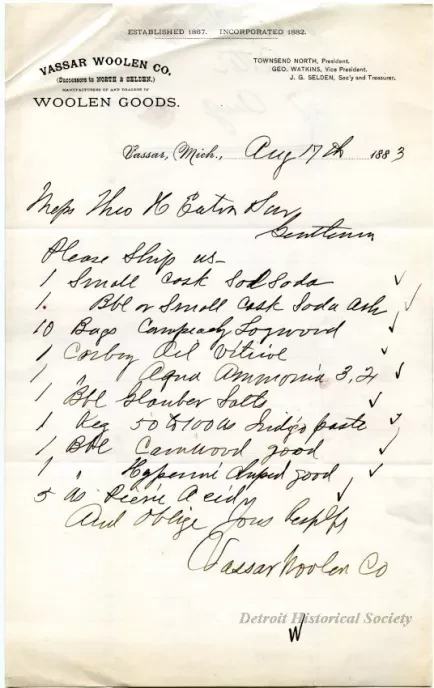 ESTABLISHED 1867. INCORPORATED 1882.
VASSAR WOOLEN CO.
(Successors to NORTH & SELDEN.)
MANUFACTURERS OF AND DEALERS IN
WOOLEN GOODS.
TOWNSEND NORTH, President.
GEO. WATKINS, Vice President.
J. G. SELDEN, Sec'y and Treasurer.
Vassar, Mich., Aug 17th 1883
Mess Theo H Eaton & Son
Gentlemen
Please Ship us-
1 Small Cask Sal Soda
1. Bbl or Small Cask Soda Ash
10 Bags Campeachy Logwood
1 Carboy Oil Vitriol
1 " Aqua Ammonia 3,2
1 Bbl Glauber Salts
1 Keg 50 to 100 lbs Indigo paste
1 Bbl Camwood good
1 " good
5 lbs Picric Acid
And Oblige Yours Respfy
Vassar Woolen Co
Detroit Historical Society
W